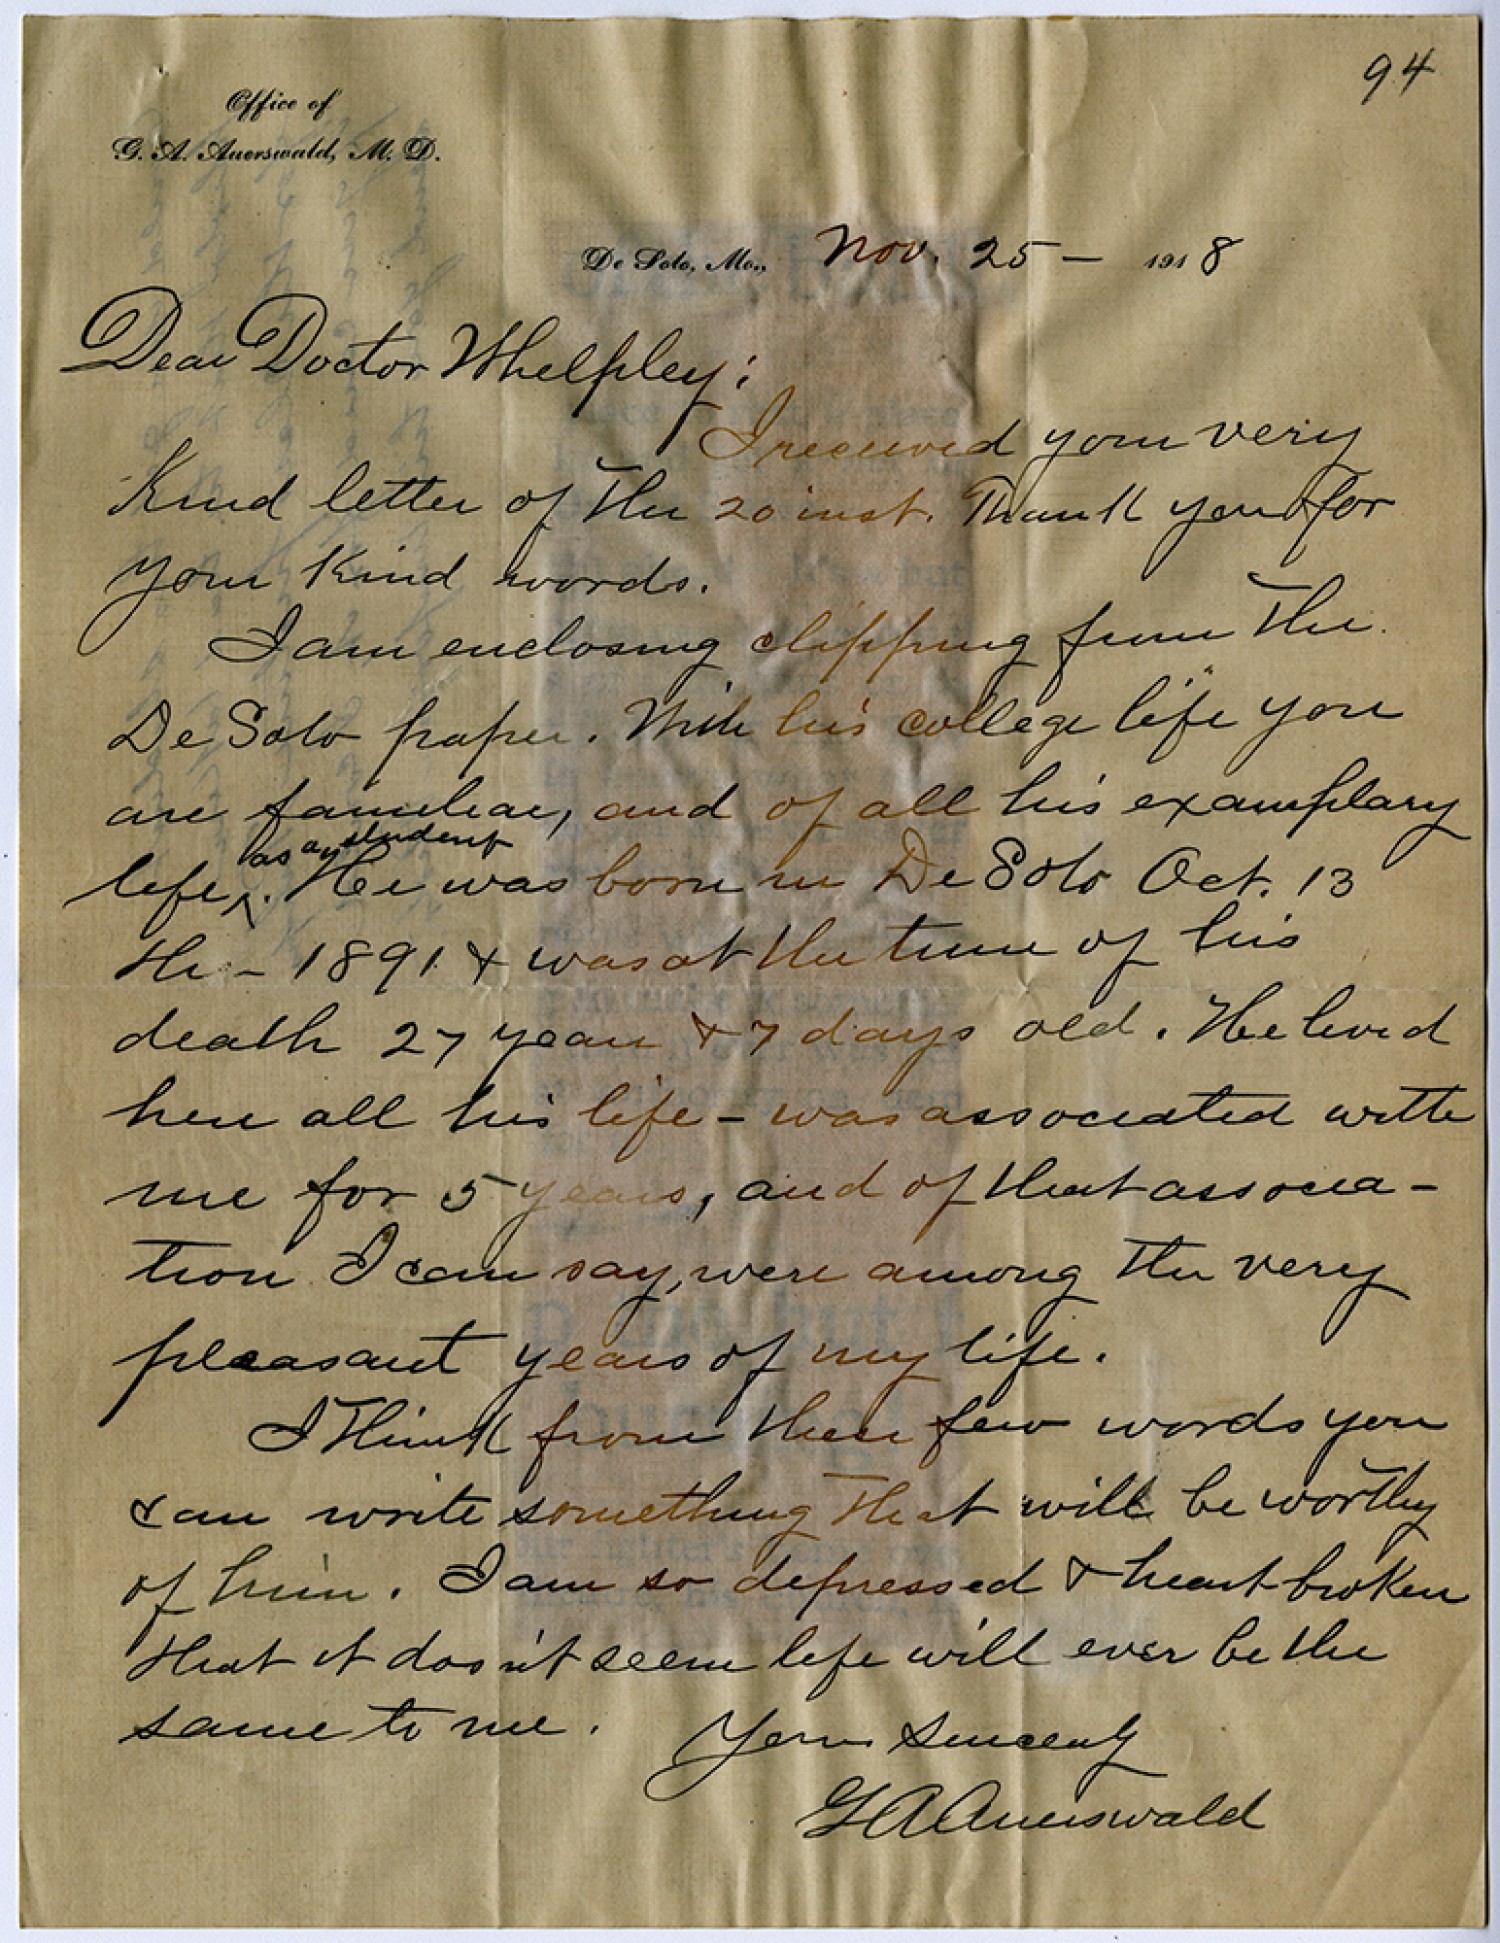 94
Office of
G. A. Auerswald, M. D.
De Soto, Mo., Nov. 25 - 1918
Dear Doctor Whelpley:
I received your very
Kind letter of the 20 inst. Thank you for
your kind words.
I am enclosing clipping from the
De Soto paper. With his college life you
are familiar, and of all his examplary
life as a student. He was born in De Soto Oct. 13
the - 1891 & was at the time of his
death 27 years & 7 days old. He lived
here all his life - was associated with
me for 5 years, and of that associa-
tion I can say, were among the very
pleasant years of my life.
I think from these few words you
can write something that will be worthy
of him. I am so depressed & heart broken
that it dos n't seem life will ever be the
same to me.
Yours Sincerely
G A Auerswald